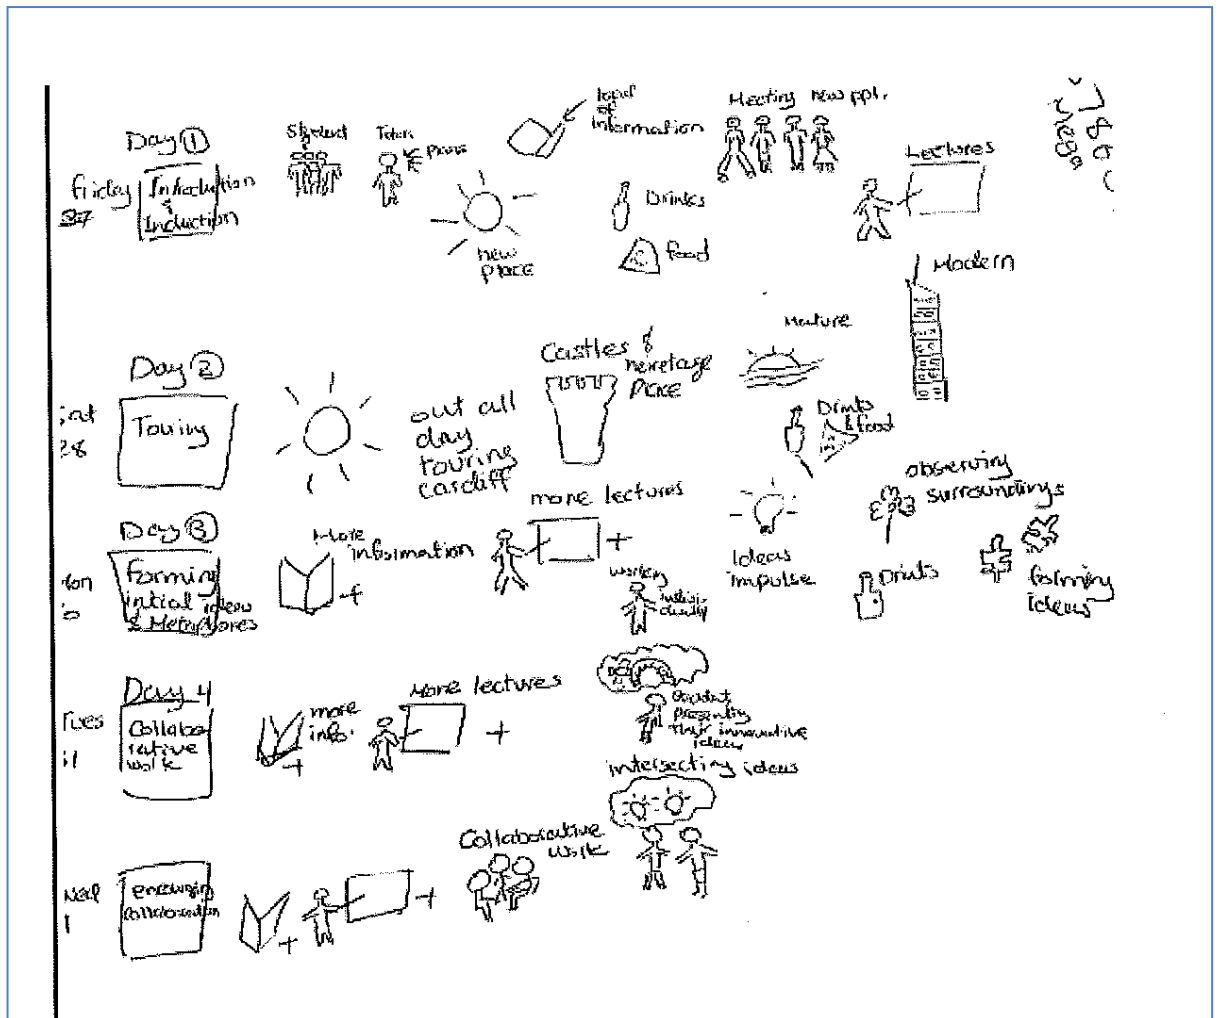 Day ①
Friday
27
Introduction
&
Induction
Tutors
new
place
load
of
information
Drinks
food
Meeting new ppl.
Lectures
Modern
Day ②
Sat
28
Touring
out all
day
touring
cardiff
Castles &
heretage
place
Nature
Drinks
& food
Day ③
Forming
initial ideas
& Metaphores
More
information
+
more lectures
+
working
individually
Ideas
impulse
observing
surroundings
Drinks
forming
ideas
Day 4
Tues
Collabo
rative
work
more
info.
+
More lectures
+
presenting
their innovative
ideas
intersecting ideas
Wed
1
collaboration
+
+
Collaborative
work